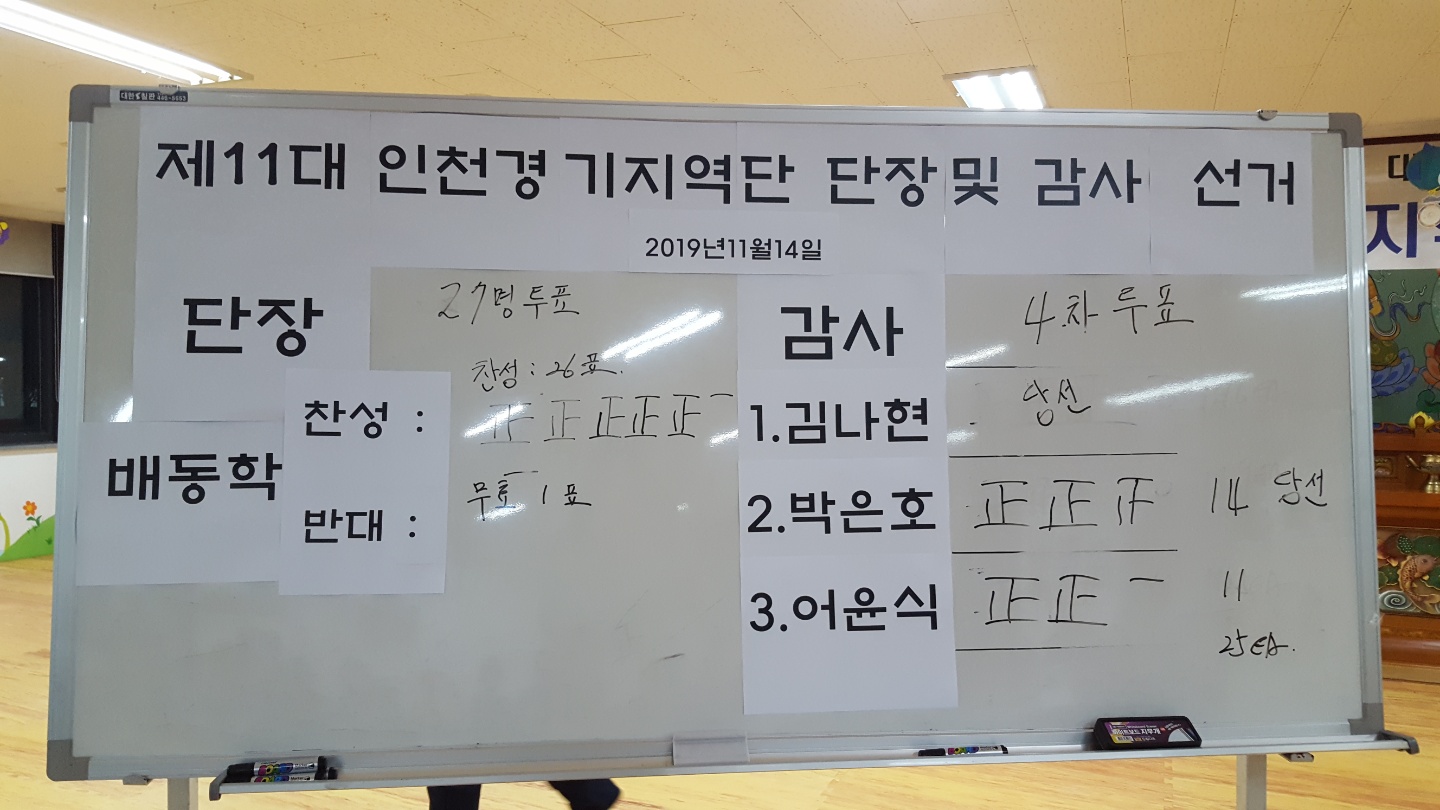 제11대 인천경기지역단 단장 및 감사 선거
2019년11월14일
단장
27명 투표
찬성 : 26표.
찬성 :
正 正 正 正 正 一
배동학
반대 :
무효 1표
감사
4차 투표
1.김나현
당선
2.박은호
正 正 正 14 당선
3.어윤식
正 正 一 11
25EA.
대
지